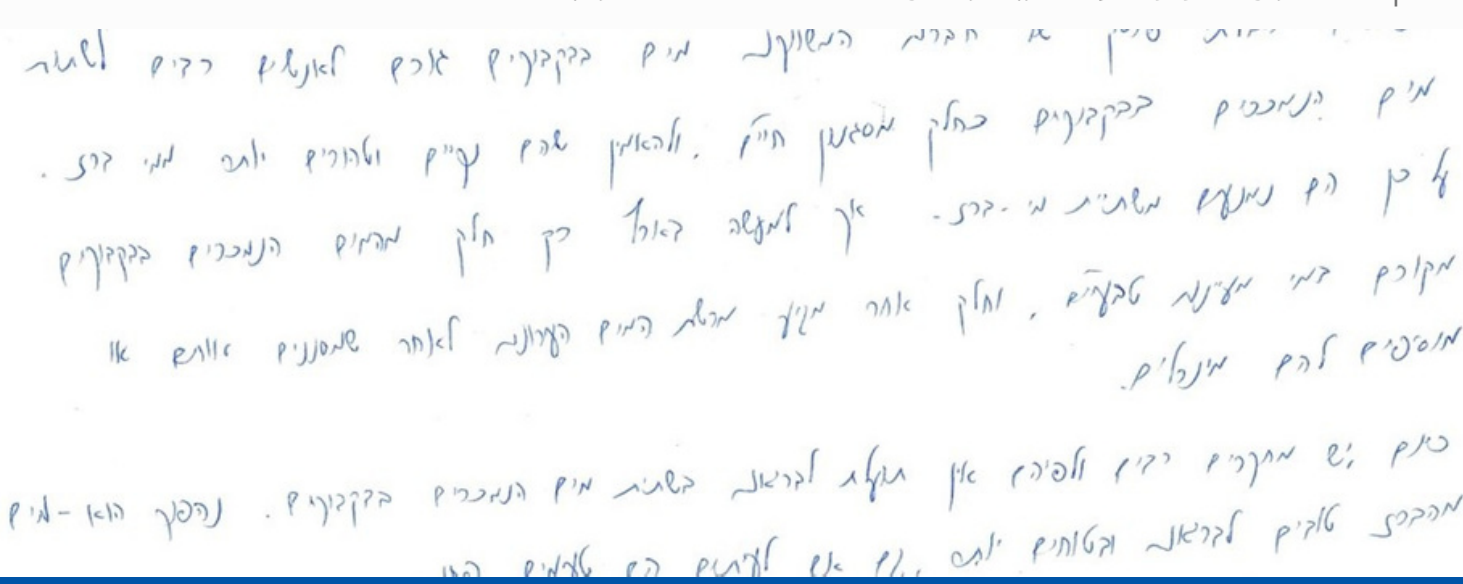 של חברות המשווקות מים בבקבוקים גורם לאנשים רבים לשתות
מים הנמכרים בבקבוקים כחלק מסגנון חיים, ולהאמין שהם נקיים וטהורים יותר ממי ברז.
על כן הם נמנעים משתיית מי-ברז. אך למעשה בארץ רק חלק מהמים הנמכרים בבקבוקים
מקורם במי מעיינות טבעיים, וחלק אחר מגיע מרשת המים העירונית לאחר שמסננים אותם או
מוסיפים להם מינרלים.
כיום יש מחקרים רבים ולפיהם אין תועלת לבריאות בשתיית מים הנמכרים בבקבוקים. נהפוך הוא - מים
מהברז טובים לבריאות ובטוחים יותר, גם אם לעיתים הם טעימים פחות